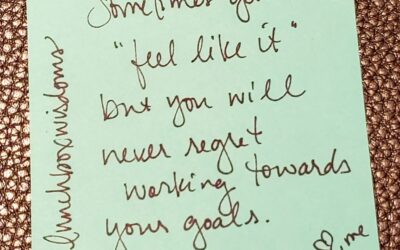 Sometimes you
"feel like it"
but you will
never regret
working towards
your goals.
♡, me
lunchboxwisdoms